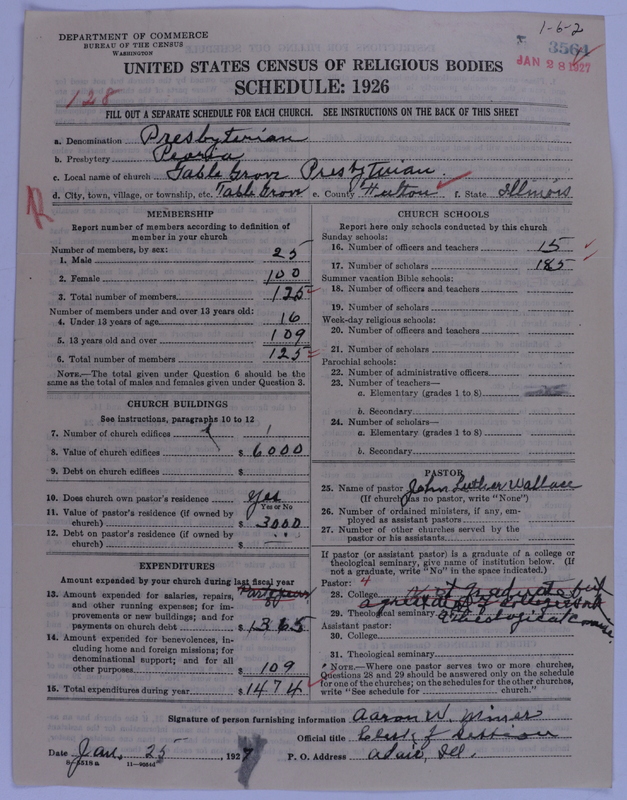 1-6-2
DEPARTMENT OF COMMERCE
BUREAU OF THE CENSUS
WASHINGTON
3564
JAN 28 1927
UNITED STATES CENSUS OF RELIGIOUS BODIES
SCHEDULE: 1926
128
FILL OUT A SEPARATE SCHEDULE FOR EACH CHURCH. SEE INSTRUCTIONS ON THE BACK OF THIS SHEET
a. Denomination Presbyterian
b. Presbytery Peoria
c. Local name of church Table Grove Presbyterian
d. City, town, village, or township, etc. Table Grove e. County Fulton f. State Illinois
R
MEMBERSHIP
Report number of members according to definition of
member in your church
Number of members, by sex:
1. Male 25
2. Female 100
3. Total number of members 125
Number of members under and over 13 years old:
4. Under 13 years of age 16
5. 13 years old and over 109
6. Total number of members 125
NOTE.—The total given under Question 6 should be the
same as the total of males and females given under Question 3.
CHURCH BUILDINGS
See instructions, paragraphs 10 to 12
7. Number of church edifices 1
8. Value of church edifices $ 6000
9. Debt on church edifices $
10. Does church own pastor's residence Yes
Yes or No
11. Value of pastor's residence (if owned by
church) $ 3000
12. Debt on pastor's residence (if owned by
church) $
EXPENDITURES
Amount expended by your church during last fiscal year
13. Amount expended for salaries, repairs,
and other running expenses; for im-
provements or new buildings; and for
payments on church debt $ 1365
14. Amount expended for benevolences, in-
cluding home and foreign missions; for
denominational support; and for all
other purposes $ 109
15. Total expenditures during year $ 1474
CHURCH SCHOOLS
Report here only schools conducted by this church
Sunday schools:
16. Number of officers and teachers 15
17. Number of scholars 185
Summer vacation Bible schools:
18. Number of officers and teachers
19. Number of scholars
Week-day religious schools:
20. Number of officers and teachers
21. Number of scholars
Parochial schools:
22. Number of administrative officers
23. Number of teachers—
a. Elementary (grades 1 to 8)
b. Secondary
24. Number of scholars—
a. Elementary (grades 1 to 8)
b. Secondary
PASTOR
25. Name of pastor John Luther Wallace
(If church has no pastor, write "None")
26. Number of ordained ministers, if any, em-
ployed as assistant pastors
27. Number of other churches served by the
pastor or his assistants
If pastor (or assistant pastor) is a graduate of a college or
theological seminary, give name of institution below. (If
not a graduate, write "No" in the space indicated.)
Pastor: 4
28. College not graduate but
a great deal of college work
29. Theological seminary
& Theological course
Assistant pastor:
30. College
31. Theological seminary
NOTE.—Where one pastor serves two or more churches,
Questions 28 and 29 should be answered only on the schedule
for one of the churches; on the schedules for the other churches,
write "See schedule for church."
Signature of person furnishing information Aaron W.
Official title Clerk of Session
Date Jan. 25 1927 P. O. Address Adair, Ill.
8-5518a 11-9044